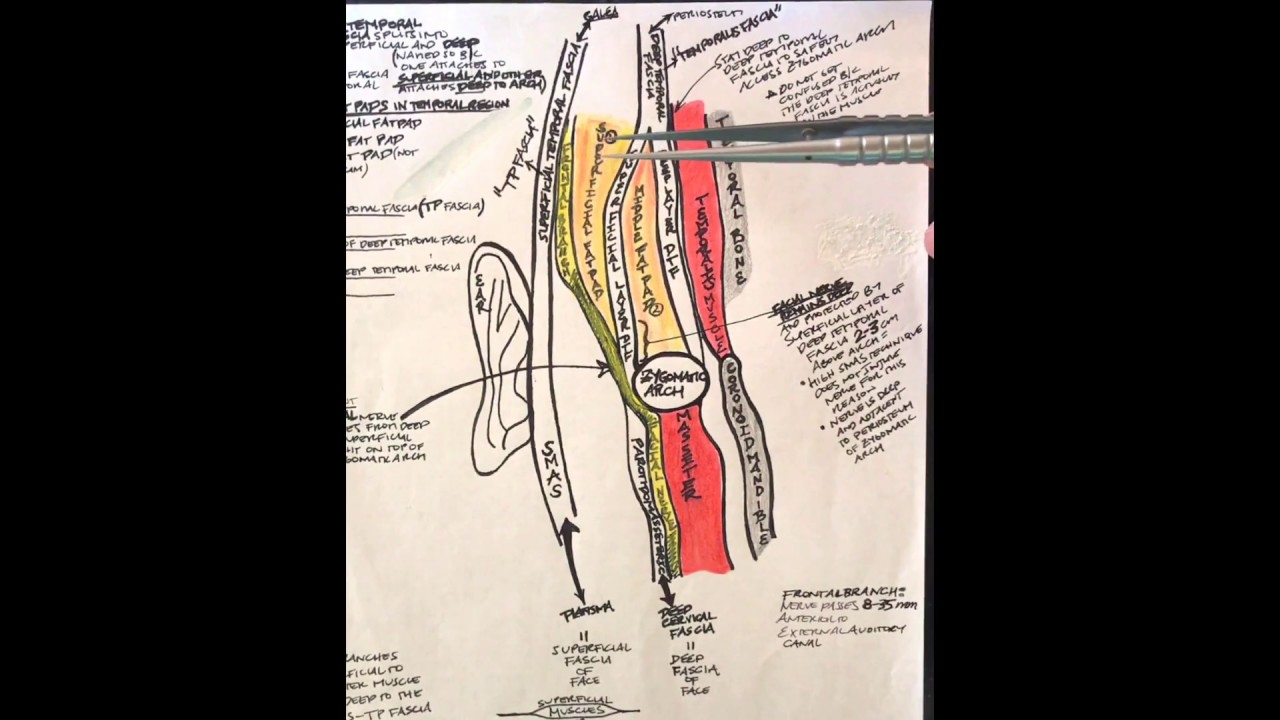 TEMPORAL
SPLITS INTO
AND DEEP
(NAMED SO B/C
ONE ATTACHES TO
SUPERFICIAL AND OTHER
ATTACHES DEEP TO ARCH)
FASCIA
PADS IN TEMPORAL REGION
FAT PAD
FAT PAD
PAD (NOT
FASCIA (TP FASCIA)
OF DEEP TEMPORAL FASCIA
DEEP TEMPORAL FASCIA
GALEA
PERIOSTEUM
"TEMPORALIS FASCIA"
STAY DEEP TO
DEEP TEMPORAL
FASCIA TO SAFELY
ACCESS ZYGOMATIC ARCH
DO NOT GET
CONFUSED B/C
THE DEEP TEMPORAL
FASCIA IS ACTUALLY
ON THE MUSCLE
"TP FASCIA"
SUPERFICIAL TEMPORAL FASCIA
FRONTAL BRANCH
SUPERFICIAL FAT PAD
SUPERFICIAL LAYER DTF
MIDDLE FAT PAD
DEEP TEMPORAL
FASCIA
LAYER DTF
TEMPORALIS MUSCLE
BONE
EAR
ZYGOMATIC
ARCH
FACIAL NERVE
REMAINS DEEP
AND PROTECTED BY
SUPERFICIAL LAYER OF
DEEP TEMPORAL
FASCIA 2-3 cm
ABOVE ARCH =
• HIGH SMAS TECHNIQUE
DOES NOT INJURE
NERVE FOR THIS
REASON
• NERVE IS DEEP
AND ADJACENT
TO PERIOSTEUM
OF ZYGOMATIC
ARCH
NERVE
FROM DEEP
SUPERFICIAL
ON TOP OF
ARCH
SMAS
FACIAL NERVE
MASSETER
CORONOID MANDIBLE
PLATYSMA
=
SUPERFICIAL
FASCIA
OF
FACE
DEEP
CERVICAL
FASCIA
=
DEEP
FASCIA
OF
FACE
FRONTAL BRANCH:
NERVE PASSES 8-35 mm
ANTERIOR TO
EXTERNAL AUDITORY
CANAL
TO
MUSCLE
DEEP TO THE
TP FASCIA
SUPERFICIAL
MUSCLES